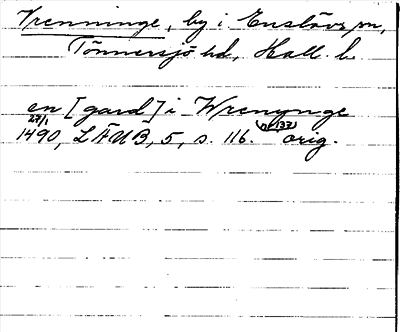 Vrenninge, by i Enslövs sn,
Tönnersjö hd, Hall. l.
en [gard] i Wrenynge
27/1
1490, LÄUB, 5, s. 116. (nr 137) orig.